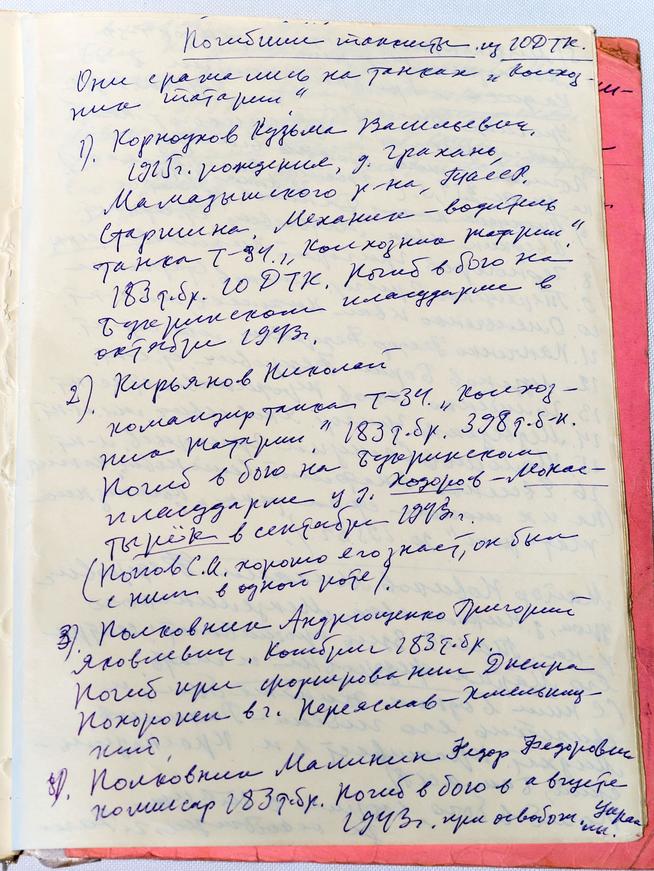 Погибшие танкисты из 10ДТК.
Они сражались на танках „Колхоз-
ник татарии"
1). Корноухов Кузьма Васильевич,
1915г. рождения, д. Грахань,
Мамадышского р-на, ТАССР.
Старшина, Механик-водитель
танка Т-34. „Колхозник татарии."
183 т.бр. 10 ДТК. Погиб в бою на
Букринском плацдарме в
октябре 1943г.
2). Кирьянов Николай
командир танка Т-34. „Колхоз-
ник татарии." 183 т.бр. 398 т.б-н.
Погиб в бою на Букринском
плацдарме у д. Ходоров-Монас-
тырёк в сентябре 1943г.
(Попов С.И. хорошо его знает, он был
с ним в одной роте).
3). Полковник Андрющенко Григорий
Яковлевич. Комбриг 183 т.бр.
Погиб при форсировании Днепра
Похоронен в г. Переяслав-Хмельниц-
кий
4). Полковник Малинин Федор Федорович
комиссар 183 т.бр. Погиб в бою в августе
1943г. при освобож. Украи-
ны.